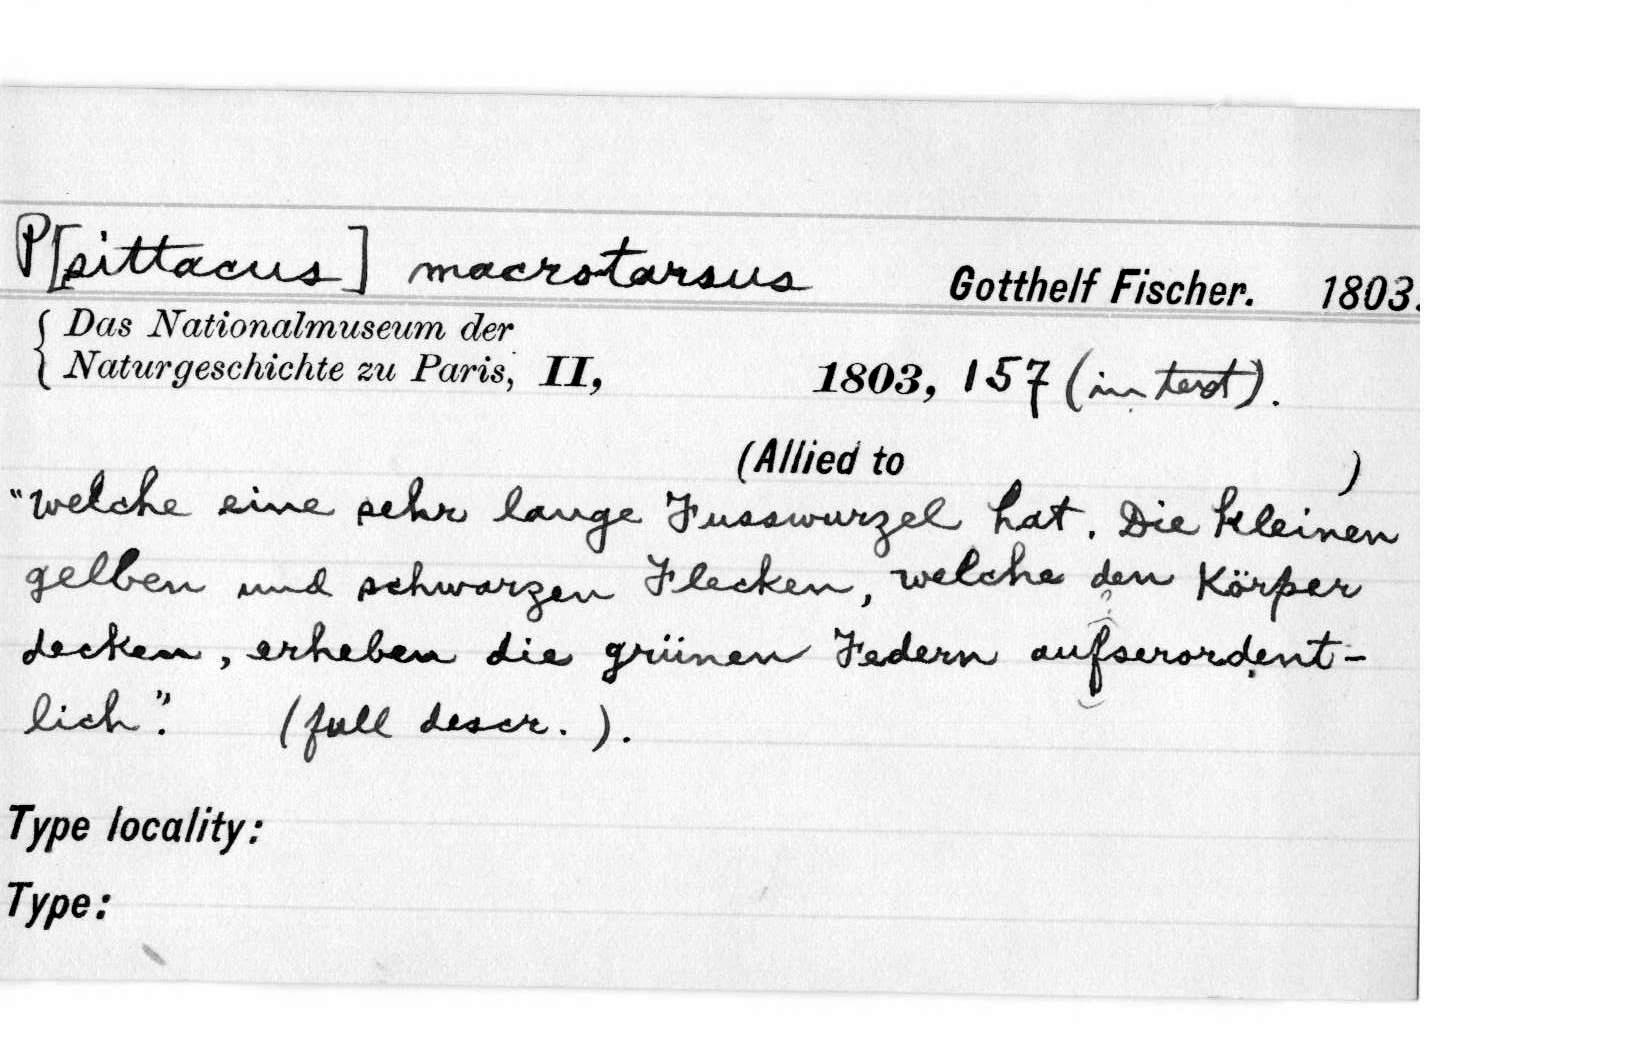 P[sittacus] macrotarsus Gotthelf Fischer. 1803.
Das Nationalmuseum der
Naturgeschichte zu Paris, II, 1803, 157 (in text).
(Allied to )
"welche eine sehr lange Fusswurzel hat. Die kleinen
gelben und schwarzen Flecken, welche den Körper
decken, erheben die grünen Federn aufserordent-
lich". (full descr.).
Type locality:
Type: